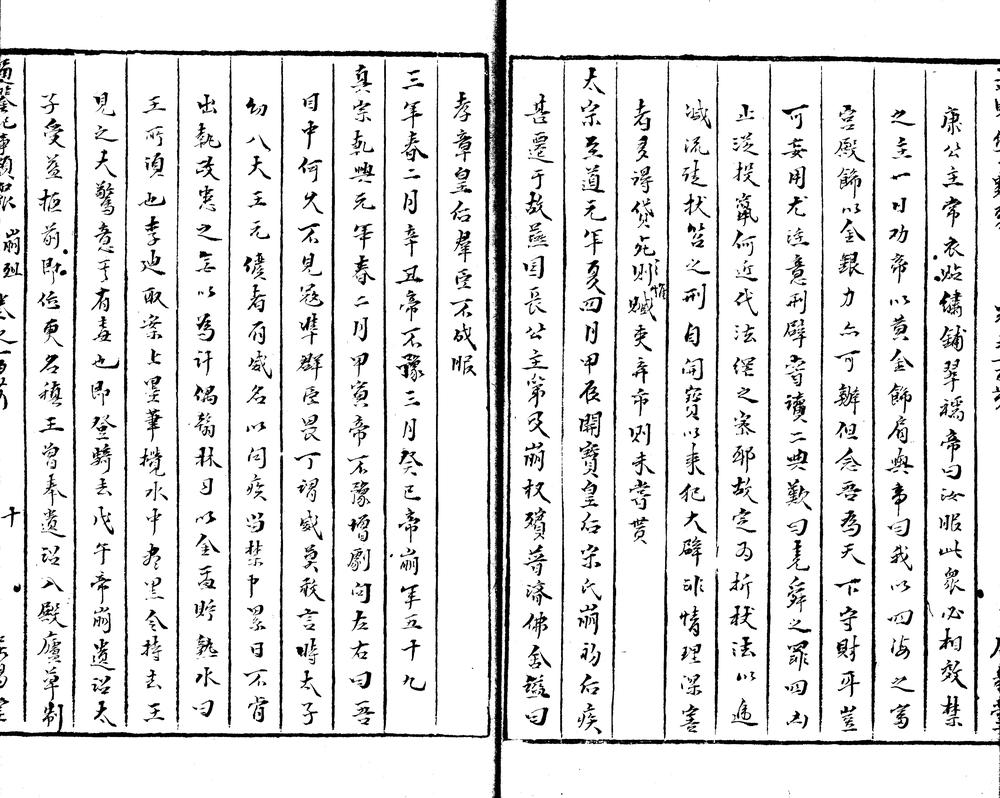 康公主常衣貼繡鋪翠襦帝曰汝服此衆必相效禁
之主一日勸帝以黃金飾肩輿帝曰我以四海之富
宮殿飾以金銀力亦可辦但念吾為天下守財耳豈
可妄用尤注意刑辟嘗讀二典歎曰堯舜之罪四凶
止從投竄何近代法網之宻耶故定為折杖法以逓
減流徒杖笞之刑自開寶以来犯大辟非情理深害
者多得貸死惟贓吏棄市則未嘗貰
太宗至道元年夏四月甲辰開寶皇后宋氏崩初后疾
甚遷于故燕國長公主第及崩权殯普濟佛舍諡曰
孝章皇后羣臣不成服
三年春二月辛丑帝不豫三月癸巳帝崩年五十九
真宗乹興元年春二月甲寅帝不豫增劇問左右曰吾
目中何久不見寇準群臣畏丁謂威莫敢言時太子
幼八大王元儼者有威名以问疾当禁中累日不肯
出執政患之無以為计偶翰林司以金盂貯熟水曰
王所須也李迪取案上墨筆攪水中盡黑令持去王
見之大驚意其有毒也即登騎去戊午帝崩遺诏太
子受益柩前即位更名禎王曾奉遺诏入殿廬草制
崩
十